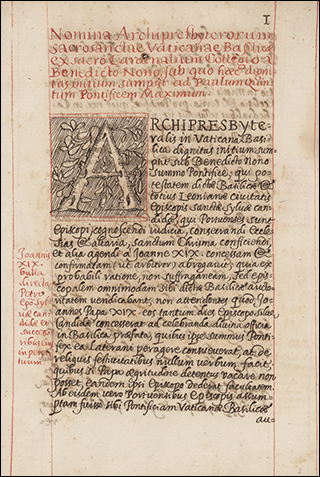 1
Nomina Archipresbyterorum
sacrosanctae Vaticanae Basilicae
ex sacro Cardinalium Collegio a
Benedicto Nono, sub quo haec digni-
tas initium sumpsit ad Paulum Quin-
tum Pontificem Maximum.
ARCHIPRESBYTE-
ralis in Vaticana Basi-
lica dignitas initium sum-
psit sub Benedicto Nono
summo Pontifice, qui po-
testatem dictae Basilicae et
totius Leoninae civitatis
Episcopis Sanctae Sylvae can-
didae, qui Portuenses sunt
Episcopi cognoscendi iudicia, conservandi Eccle-
sias et altaria, sanctum Chrisma conficiendi,
et alia agendi a Joanne XIX. concessam et
confirmatam, (ut arbitror) abrogavit, quia ex
probabili ratione, non suffraganeam, sed epis-
copalem omnimodam sibi dictae Basilicae aucto-
ritatem vendicabant, non attendentes quod Jo-
annes Papa XIX. eos tantum dictos Episcopos Silvae
Candidae concesserat ad celebranda divina officia
in Basilica praefata, quibus ipse summus Ponti-
fex ea Laterani peragere consueverat, at de
reliquis festivitatibus nullum verbum facit,
quibus si Papa aegritudine detentus vacare non
posset, eandem ipsi Episcopo dederat facultatem.
Ab eisdem vero Portuensibus Episcopis assum-
ptam fuisse sibi Pontificiam Vaticanae Basilicae
au-
Joannis
XIX.
bulla
directa
Petro
Episcopo Syl-
vae can-
didae et
succes-
soribus suis
in perpe-
tuum